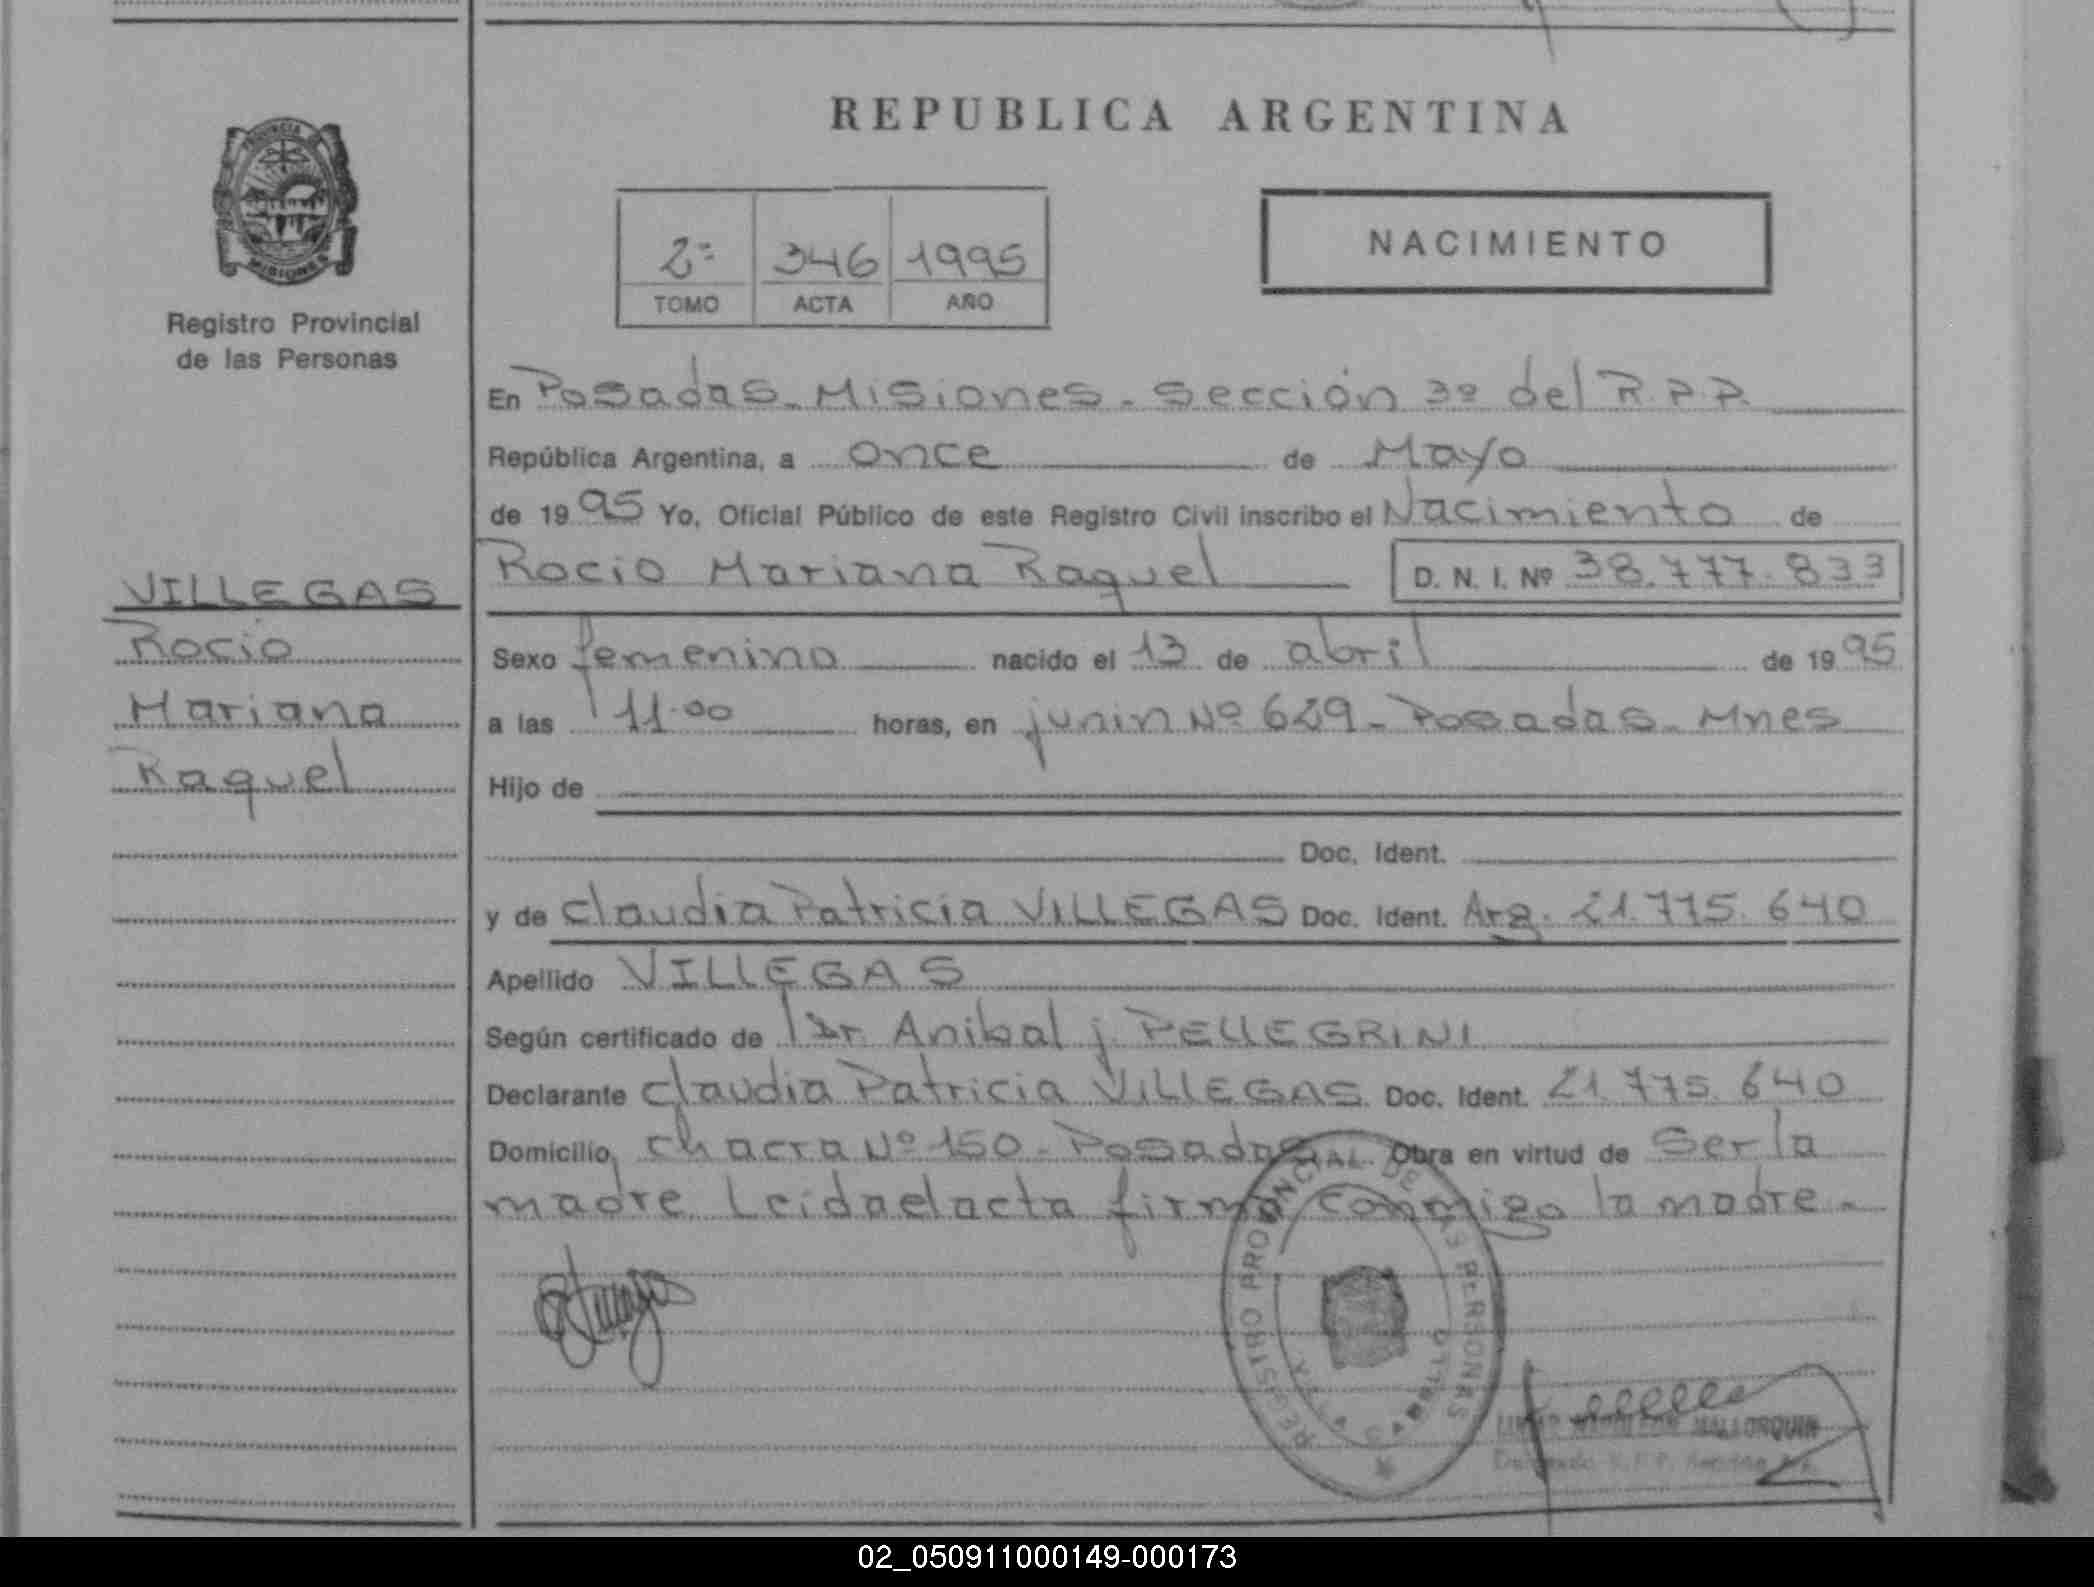 REPUBLICA ARGENTINA
PROVINCIA
MISIONES
Registro Provincial
de las Personas
2º 346 1995
TOMO ACTA AÑO
NACIMIENTO
En Posadas - Misiones - Sección 3º del R.P.P.
República Argentina, a once de Mayo
de 1995 Yo, Oficial Público de este Registro Civil inscribo el Nacimiento de
Rocio Mariana Raquel D. N. I. Nº 38.777.833
VILLEGAS
Rocio
Mariana
Raquel
Sexo femenino nacido el 13 de abril de 1995
a las 11.00 horas, en junin Nº 629 - Posadas - Mnes
Hijo de
Doc. Ident.
y de Claudia Patricia VILLEGAS Doc. Ident. Arg. 21.775.640
Apellido VILLEGAS
Según certificado de Dr. Anibal j. PELLEGRINI
Declarante Claudia Patricia VILLEGAS Doc. Ident. 21.775.640
Domicilio chacra Nº 150 - Posadas Obra en virtud de Ser la
madre Leida el acta firma conmigo la madre -
REGISTRO PROVINCIAL DE LAS PERSONAS
MALLORQUIN
02_050911000149-000173